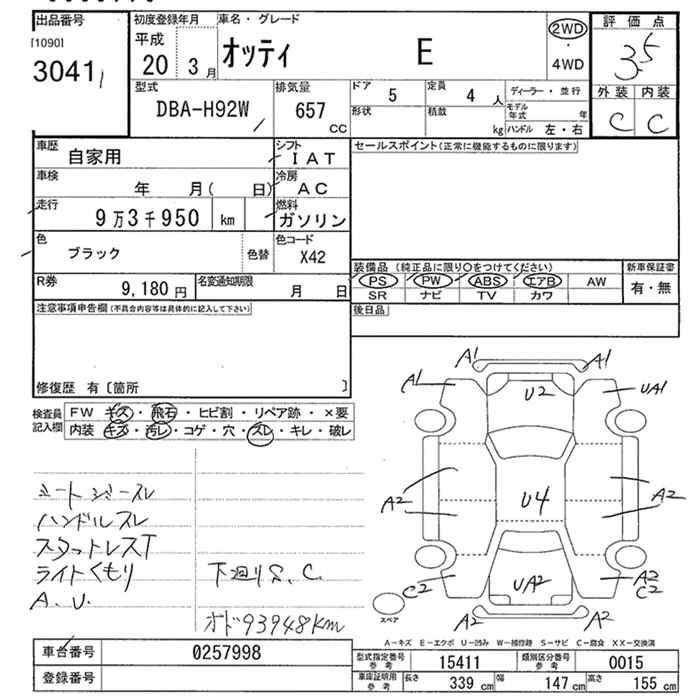 出品番号 初度登録年月 車名・グレード 2WD 評価点
[1090] 平成 オッティ E ・ 3.5
3041 20 3月 4WD
型式 排気量 ドア 5 定員 4人 ディーラー・並行 外装 内装
DBA-H92W 657 CC 形状 積載 kg モデル年式 年 C C
ハンドル 左・右
車歴 自家用 シフト IAT セールスポイント(正常に機能するものに限ります)
車検 年 月( 日) 冷房 AC
走行 9万3千950 km 燃料 ガソリン
色 ブラック 色替 色コード X42
装備品(純正品に限り○をつけてください) 新車保証書
R券 9,180円 名変通知期限 月 日 PS PW ABS エアB AW 有・無
SR ナビ TV カワ
注意事項申告欄(不具合内容等は具体的に記入して下さい) 後日品
修復歴 有〔箇所 〕
検査員記入欄 FW キズ・飛石・ヒビ割・リペア跡・×要
内装 キズ・汚レ・コゲ・穴・スレ・キレ・破レ
A1 A1
A1 U2 UA1
A2 U4 A2
C2 UA2 A2 C2
A2 A2
スペア
シートジースレ
ハンドルスレ
スタットレスT
ライトくもり 下廻りS.C.
A.U.
オド93948km
A-キズ E-エクボ U-凹み W-補修跡 S-サビ C-腐食 XX-交換済
車台番号 0257998 型式指定番号 参考 15411 類別区分番号 参考 0015
登録番号 車庫証明用 参考 長さ 339cm 幅 147cm 高さ 155cm